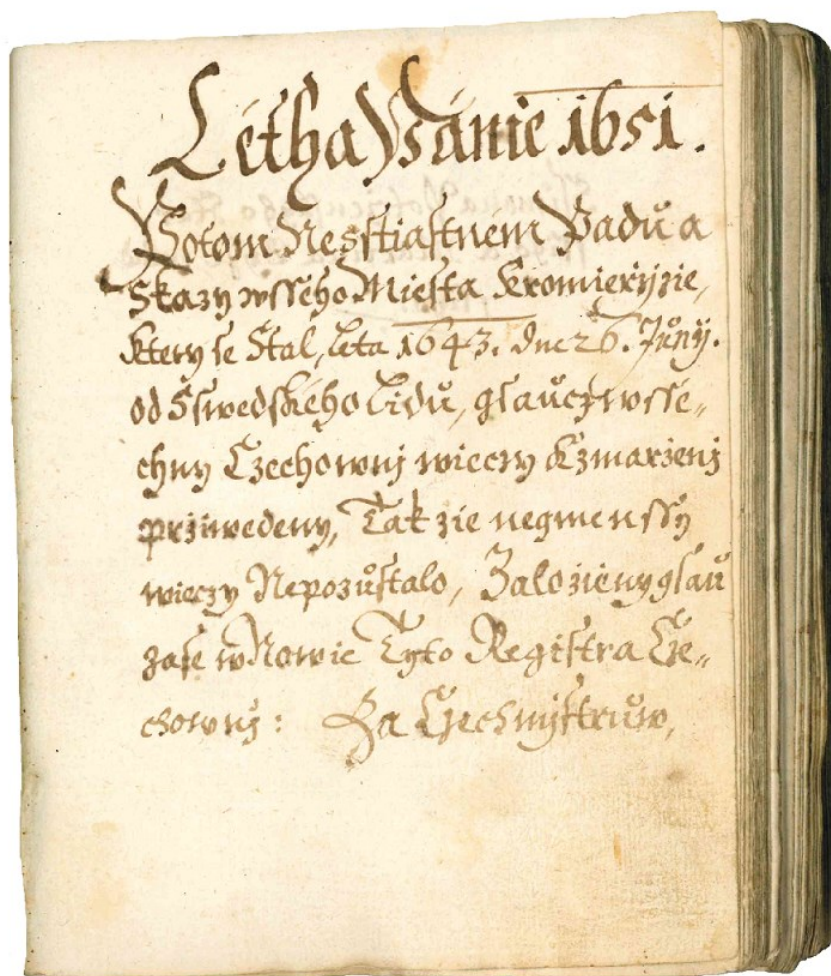 Letha Panie 1651.
Potom Nesstiastnem Padů a
Skazy wsseho Miesta Kromierzyzie,
ktery se Stal, leta 1643. dne 26. Juny.
od Sswedskeho Lidu, gsaucz wsse„
chny Czechownj wieczy k zmarzenj
przywedeny, Tak zie negmenssy
wieczy Nepozůstalo, Zalozieny gsau
zase w Nowie Tyto Registra Cze„
chownj: Za Czechmystrůw,